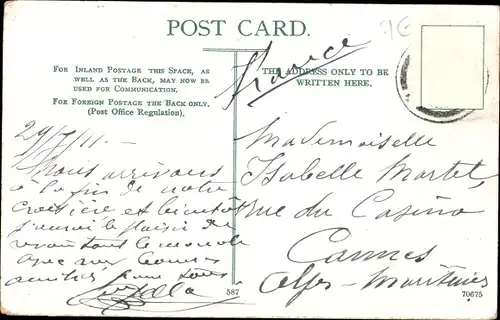 POST CARD.
FOR INLAND POSTAGE THIS SPACE, AS
WELL AS THE BACK, MAY NOW BE
USED FOR COMMUNICATION.
FOR FOREIGN POSTAGE THE BACK ONLY.
(Post Office Regulation).
THE ADDRESS ONLY TO BE
WRITTEN HERE.
France
29/7/11. -
Nous arrivons
à la fin de notre
croisière et bientôt
j'aurai le plaisir de
vous tout le monde
avec mes bonnes
amitiés pour tous
Mademoiselle
Isabelle Martel
rue du Casino
Cannes
Alpes-Maritimes
587
70675